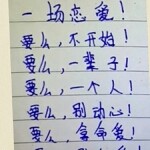 一场恋爱！
要么，不开始！
要么，一辈子！
要么，一个人！
要么，别动心！
要么，拿命爱！